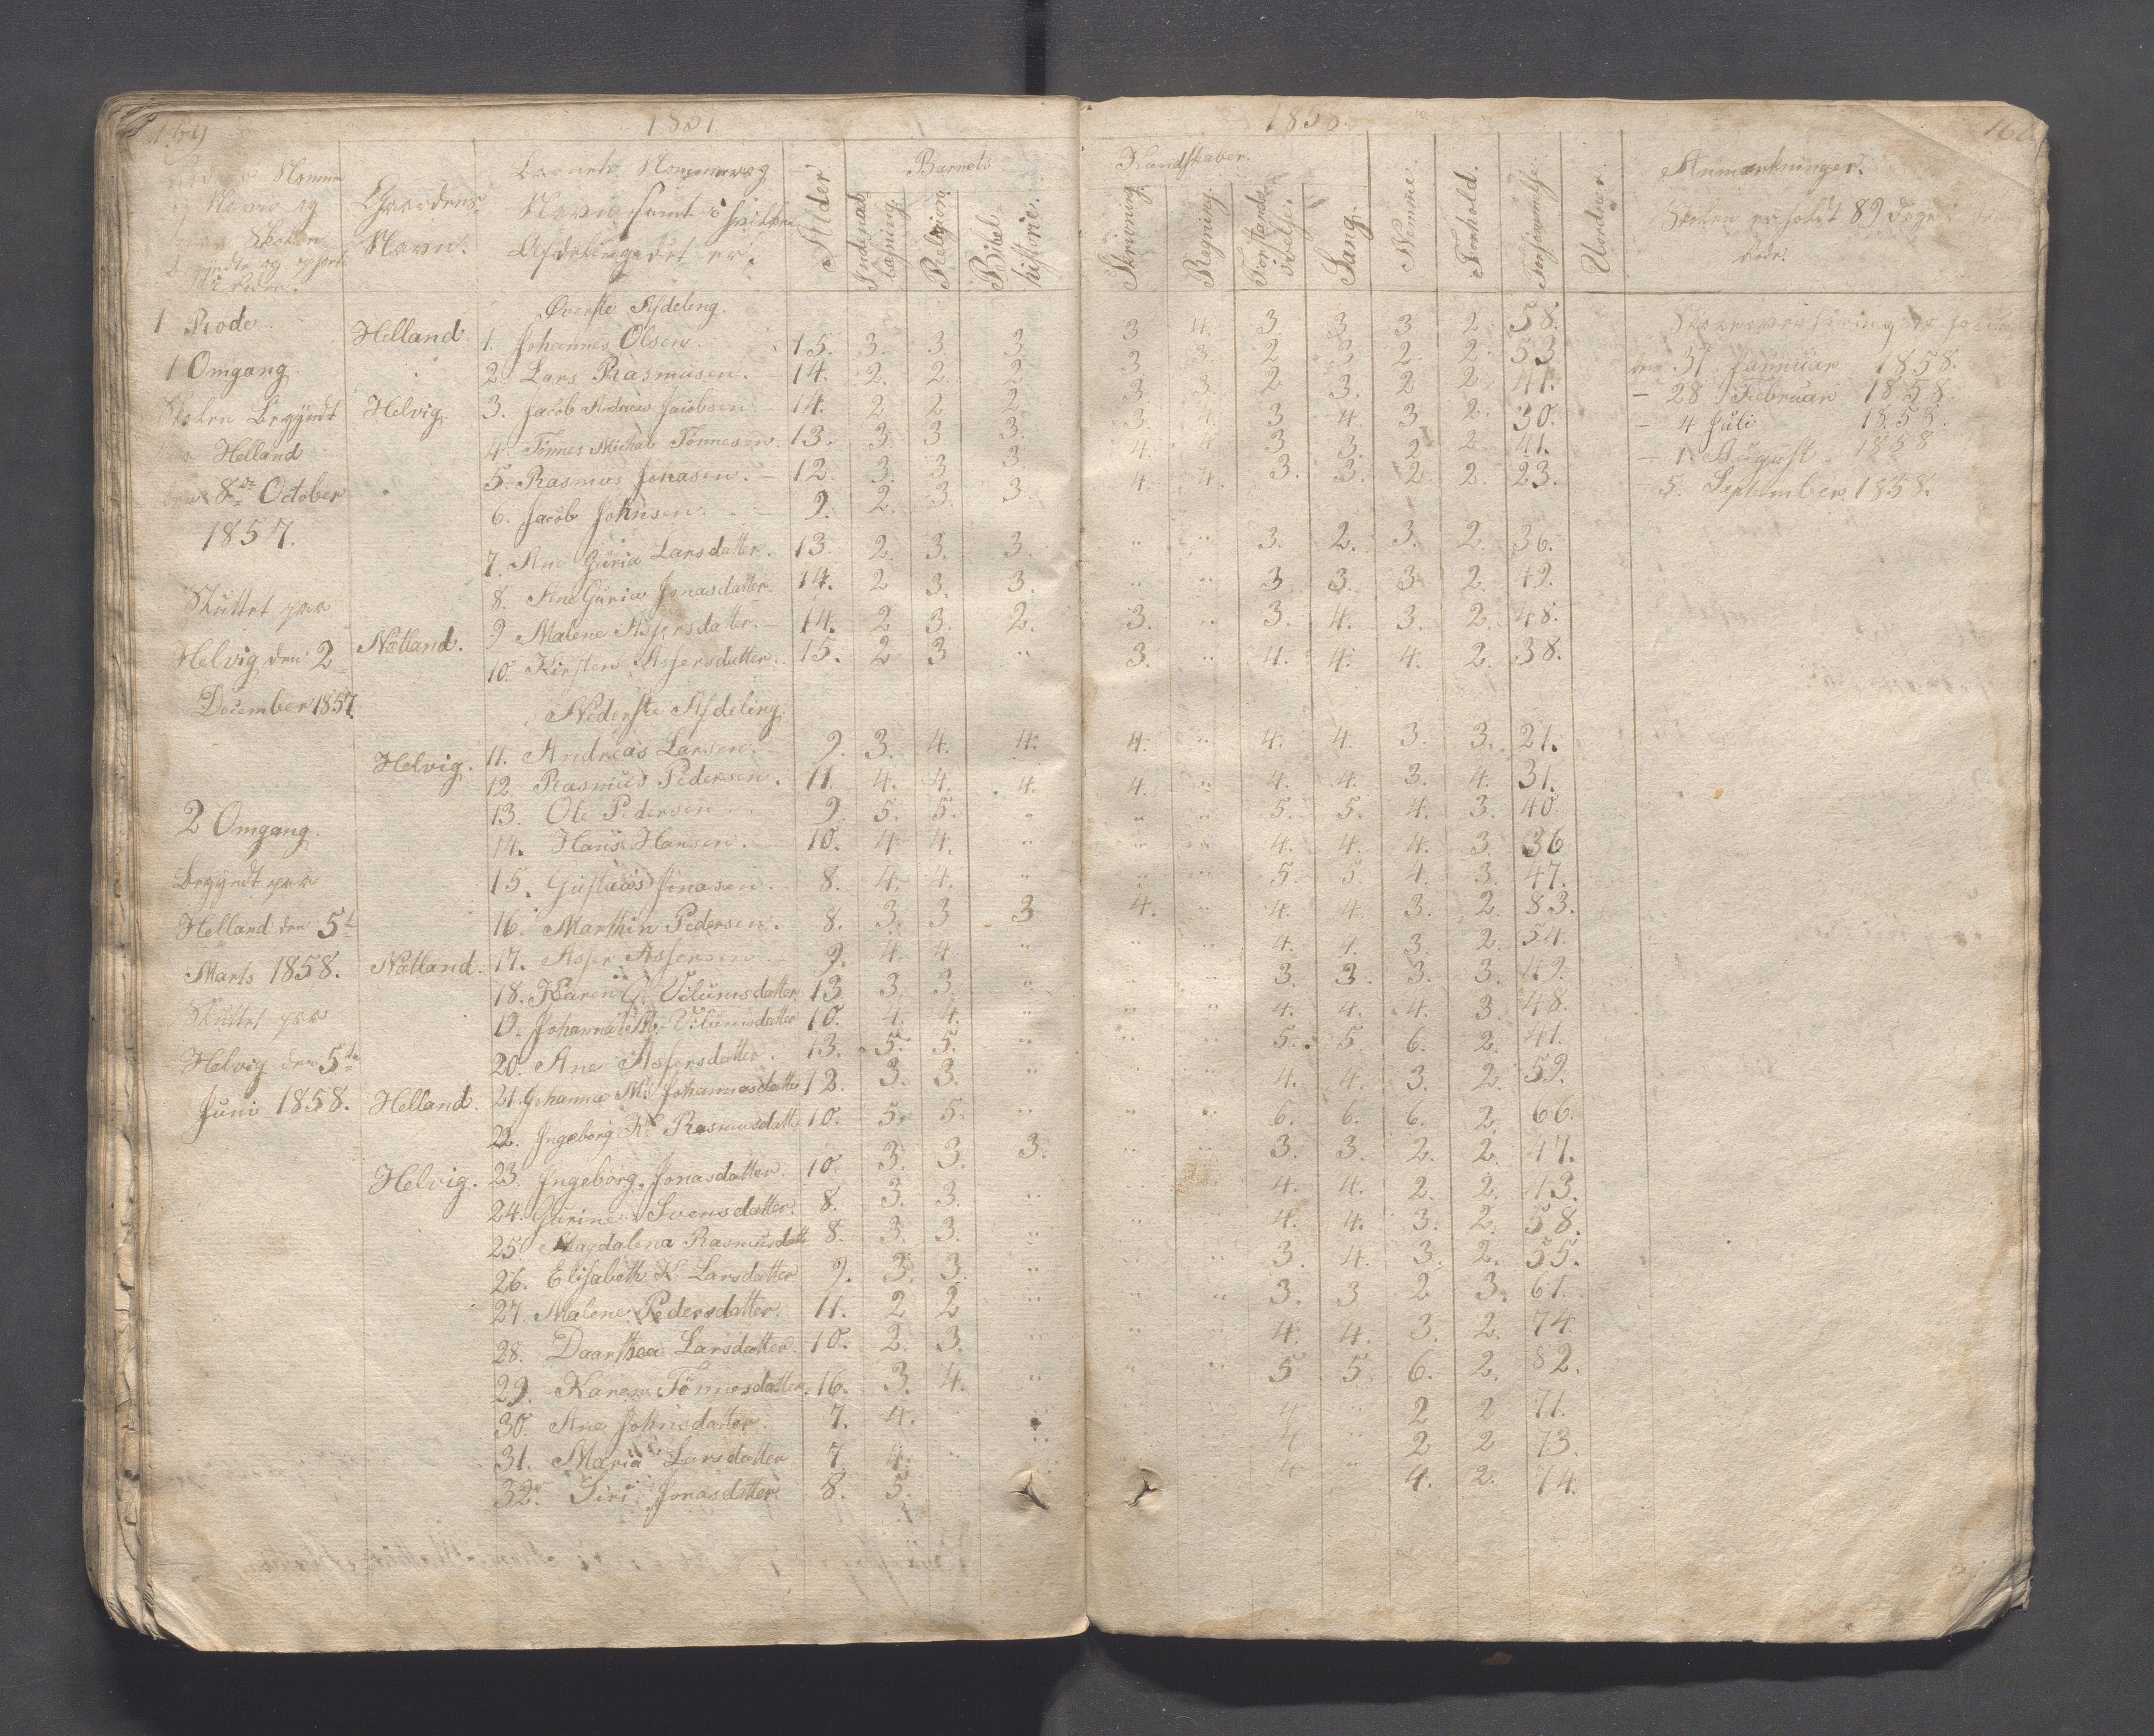 159
1857
1858.
Rodens Nommer
og Navn og
naar Skolen
Gaardens
Navn.
Barnets Nommer og
Navn samt i hvilken
Afdeling det er i.
Alder
Barnets
Kundskaber.
Indenadslæsning.
Religion.
Bibelhistorie.
Skrivning.
Regning.
Forstandsøvelse.
Sang.
Nemme.
Forhold.
Forsømmelse.
Anmærkninger.
Skolen er holdt 89 dage i denne
Rode.
1 Rode.
Øverste Afdeling.
Helland 1. Johannes Olsen. 15. 3. 3. 3 3 4. 3. 3. 3 2. 58.
1 Omgang 2. Lars Rasmusen. 14. 2. 2. 2 3 3. 2 3 2. 2. 53 den 31 Januar 1858.
Skolen Begyndt Helvig. 3. Jacob Andreas Jacobsen 14. 2 2 2. 3. 3. 2 3. 2 2 41. – 28 Februar 1858.
paa Helland 4. Tønnes Michal Tønnesen. 13. 3. 3 3. 3. 4. 3 4. 3 2. 30. – 4 Juli 1858.
den 8de October 5. Rasmus Jonasen. 12. 3. 3 3. 4. 4 3 3. 2 2 41. – 1. August 1858
1857. 6. Jacob Johnsen. 9. 2. 3. 3. 4. 4. 3. 3. 2. 2. 23. – 5. September. 1858.
7. Ane Guria Larsdatter. 13. 2. 3. 3. " " 3. 2. 3. 2. 36.
8. Ane Guria Jonasdatter. 14. 2 3. 3. " " 3 3. 3 2. 49.
Skuttet paa
9 Malene Assersdatter. 14. 2 3. 2. 3. " 3. 4. 3. 2. 48.
Helvig den 2 Nætland. 10. Kirsten Assersdatter. 15. 2 3 " 3. " 4. 4. 4. 2. 38.
December 1857.
Nederste Afdeling.
Helvig. 11. Andreas Larsen. 9. 3. 4. 4. 4. " 4. 4. 3. 3. 21.
12. Rasmus Pedersen. 11. 4. 4. 4. 4. " 4. 4. 3. 4. 31.
2 Omgang. 13. Ole Pedersen 9. 5. 5. " " " 5. 5. 4. 3. 40.
14. Hans Hansen. 10. 4 4. " " " 4. 4. 4. 3. 36
Begyndt paa 15. Gustavus Jonasen. 8. 4. 4. " " " 5. 5. 4. 3. 47.
Helland den 5te 16. Marthin Pedersen. 8. 3. 3 3 4. " 4. 4. 3. 2. 83.
Marts 1858. Nætland. 17. Asser Assersen 9. 4. 4 " " " 4. 4. 3. 2. 54.
18. Karen G. Vilumsdatter 13 3. 3. " " " 3. 3. 3. 3. 49.
Skuttet paa 19. Johanne M. Vilumsdatter 10. 4. 4. " " " 4. 4. 4. 3. 48.
Helvig den 5te 20. Ane Assersdatter. 13. 5. 5. " " " 5. 5. 6. 2. 41.
Juni 1858. Helland. 21. Johanne M. Johannesdatter 12. 3. 3. " " " 4. 4. 3. 2. 59.
22. Ingeborg K. Rasmusdatt. 10. 5. 5. " " " 6. 6. 6. 2. 66.
Helvig. 23. Ingeborg Jonasdatter. 10. 3. 3. 3. " " 3. 3. 2. 2. 47.
24. Gurine Svensdatter. 8. 3. 3. " " " 4. 4. 2. 2. 43.
25. Magdalena Rasmusdatt 8. 3. 3. " " " 4. 4. 3. 2. 58.
26. Elisabeth K. Larsdatter 9. 3. 3. " " " 3. 4. 3. 2. 55.
27. Malene Pedersdatter. 11. 2 2 " " " 3. 3 2 3. 61.
28. Daarthea Larsdatter. 10. 2. 3. " " " 4. 4. 3. 2. 74.
29. Karen Tønnesdatter. 16. 3. 4. " " " 5 5. 6. 2. 82.
30. Ane Johnsdatter. 7. 4. " " 4 " 2 2 71.
31. Maria Larsdatter 7 4. " " 4 " 2 2 73.
32. Siri Jonasdatter. 8. 5. 4 " 4. 2. 74.